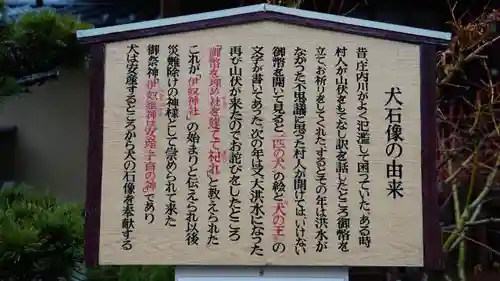 犬石像の由来
昔庄内川がよく氾濫して困っていた ある時
村人が山伏をもてなし訳を話したところ御幣を
立てお祈りをしてくれた するとその年は洪水が
なかった 不思議に思った村人が開けてはいけない
御幣を開いて見ると一匹の犬の絵と「犬の王」の
文字が書いてあった 次の年は又大洪水となった
再び山伏が来たのでお詫びをしたところ
「御幣を埋め社を建てて祀れ」と教えられた
これが「伊奴神社」の始まりと伝えられ以後
災難除けの神様として崇められて来た
御祭神「伊奴姫神は安産・子育の神」であり
犬は安産するところから犬の石像を奉献する